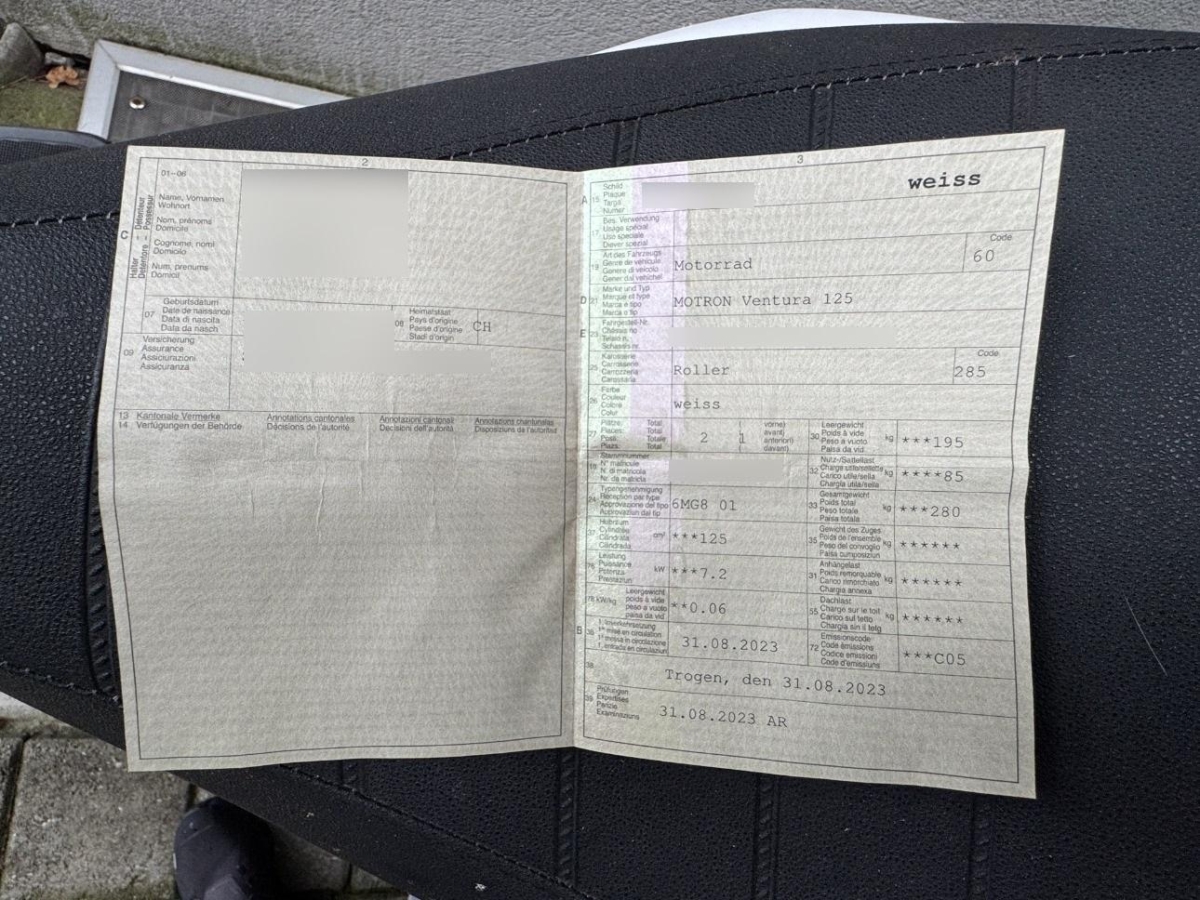 2
01–06
C
Halter
Détenteur
Detentore
Possessur
Name, Vornamen
Wohnort
Nom, prénoms
Domicile
Cognome, nomi
Domicilio
Num, prenums
Domicil
07
Geburtsdatum
Date de naissance
Data di nascita
Data da nasch.
08
Heimatstaat
Pays d'origine
Paese d'origine
Stadi d'origin
CH
09
Versicherung
Assurance
Assicurazioni
Assicuranza
13 Kantonale Vermerke Annotations cantonales Annotazioni cantonali Annotaziuns chantunalas
14 Verfügungen der Behörde Décisions de l'autorité Decisioni dell'autorità Disposiziuns da l'autoritad
3
weiss
A 15
Schild
Plaque
Targa
Numer
17
Bes. Verwendung
Usage spécial
Uso speciale
Diever spezial
19
Art des Fahrzeugs
Genre de véhicule
Genere di veicolo
Gener dal vehichel
Motorrad
Code
60
D 21
Marke und Typ
Marque et type
Marca e tipo
Marca e tip
MOTRON Ventura 125
E 23
Fahrgestell-Nr.
Châssis no
Telaio n.
Schassis nr.
25
Karosserie
Carrosserie
Carrozzeria
Carossaria
Roller
Code
285
26
Farbe
Couleur
Colore
Colur
weiss
27
Plätze: Total
Places: Total
Posti: Totale
Plazs: Total
2 1
vorne)
avant)
anteriori)
davant)
30
Leergewicht
Poids à vide
Peso a vuoto
Paisa da vid
kg
***195
18
Stammnummer
N° matricule
N. di matricola
Nr. da matricla
32
Nutz-/Sattellast
Charge utile/sellette
Carico utile/sella
Chargia utila/sella
kg
****85
24
Typengenehmigung
Réception par type
Approvazione del tipo
Approvaziun dal tip
6MG8 01
33
Gesamtgewicht
Poids total
Peso totale
Paisa totala
kg
***280
37
Hubraum
Cylindrée
Cilindrata
Cilindrada
cm³
***125
35
Gewicht des Zuges
Poids de l'ensemble
Peso del convoglio
Paisa cumposiziun
kg
******
76
Leistung
Puissance
Potenza
Prestaziun
kW
***7.2
31
Anhängelast
Poids remorquable
Carico rimorchiato
Chargia annexa
kg
******
78 kW/kg
Leergewicht
poids à vide
peso a vuoto
paisa da vid
**0.06
55
Dachlast
Charge sur le toit
Carico sul tetto
Chargia sin il tetg
kg
******
B 36
1. Inverkehrsetzung
1re mise en circulation
1a messa in circolazione
1. entrada en circulaziun
31.08.2023
72
Emissionscode
Code émissions
Codice emissioni
Code d'emissiuns
***C05
38
Trogen, den 31.08.2023
39
Prüfungen
Expertises
Perizie
Examinaziuns
31.08.2023 AR